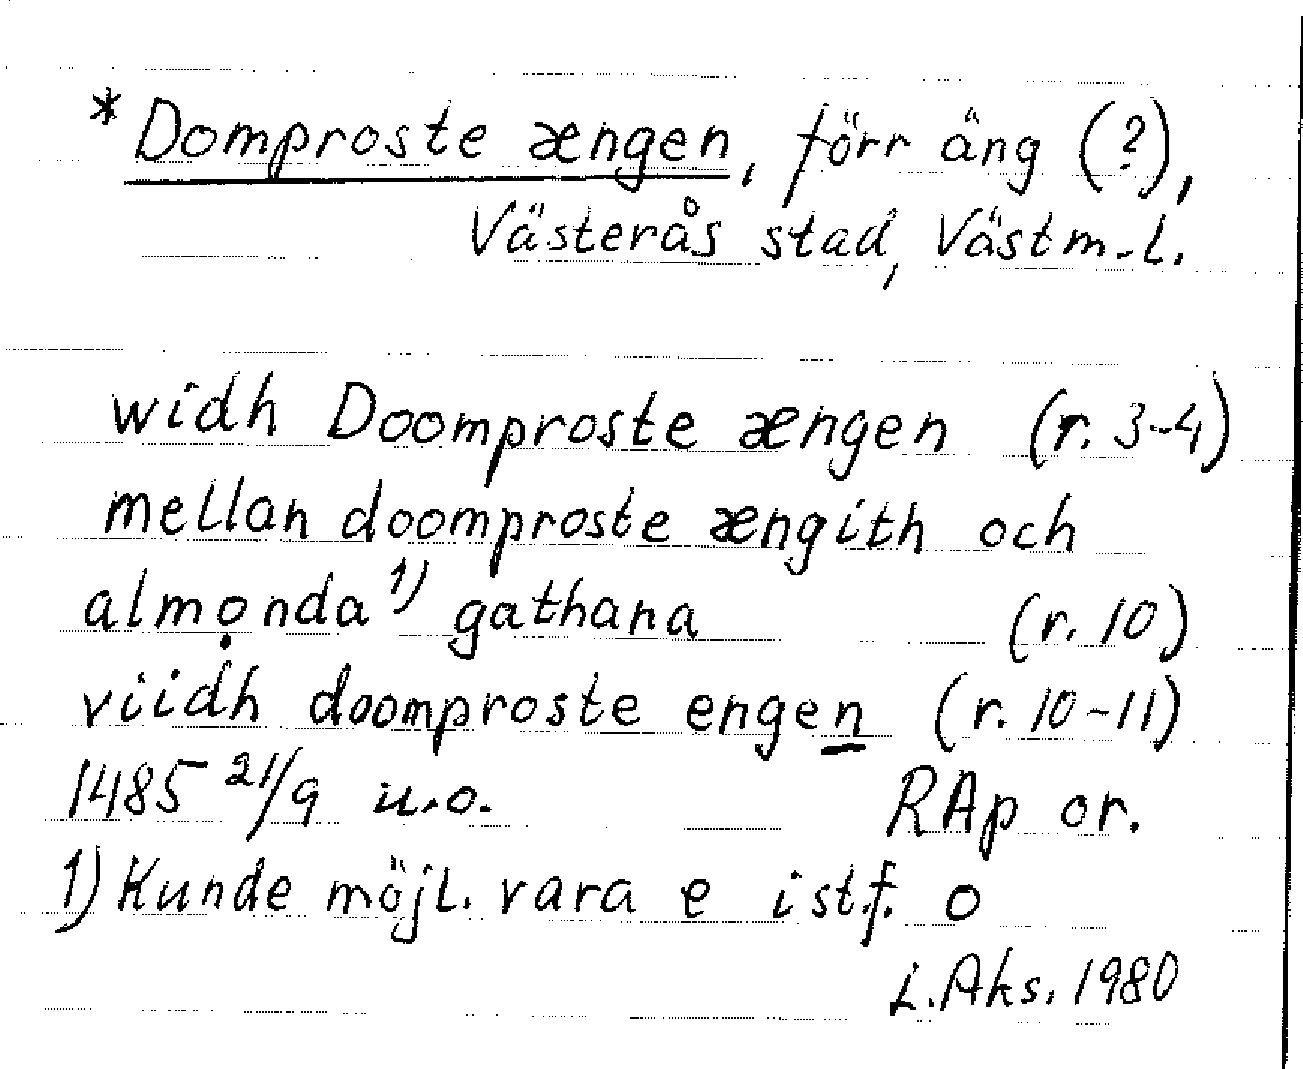 *Domproste ængen, förr äng (?),
Västerås stad, Västm.l.
widh Doomproste ængen (r. 3-4)
mellan doomproste ængith och
almọnda 1) gathana (r. 10)
viidh doomproste engen (r. 10-11)
1485 21/9 u.o. RAp or.
1) Kunde möjl. vara e ist.f. o
L. Aks. 1980